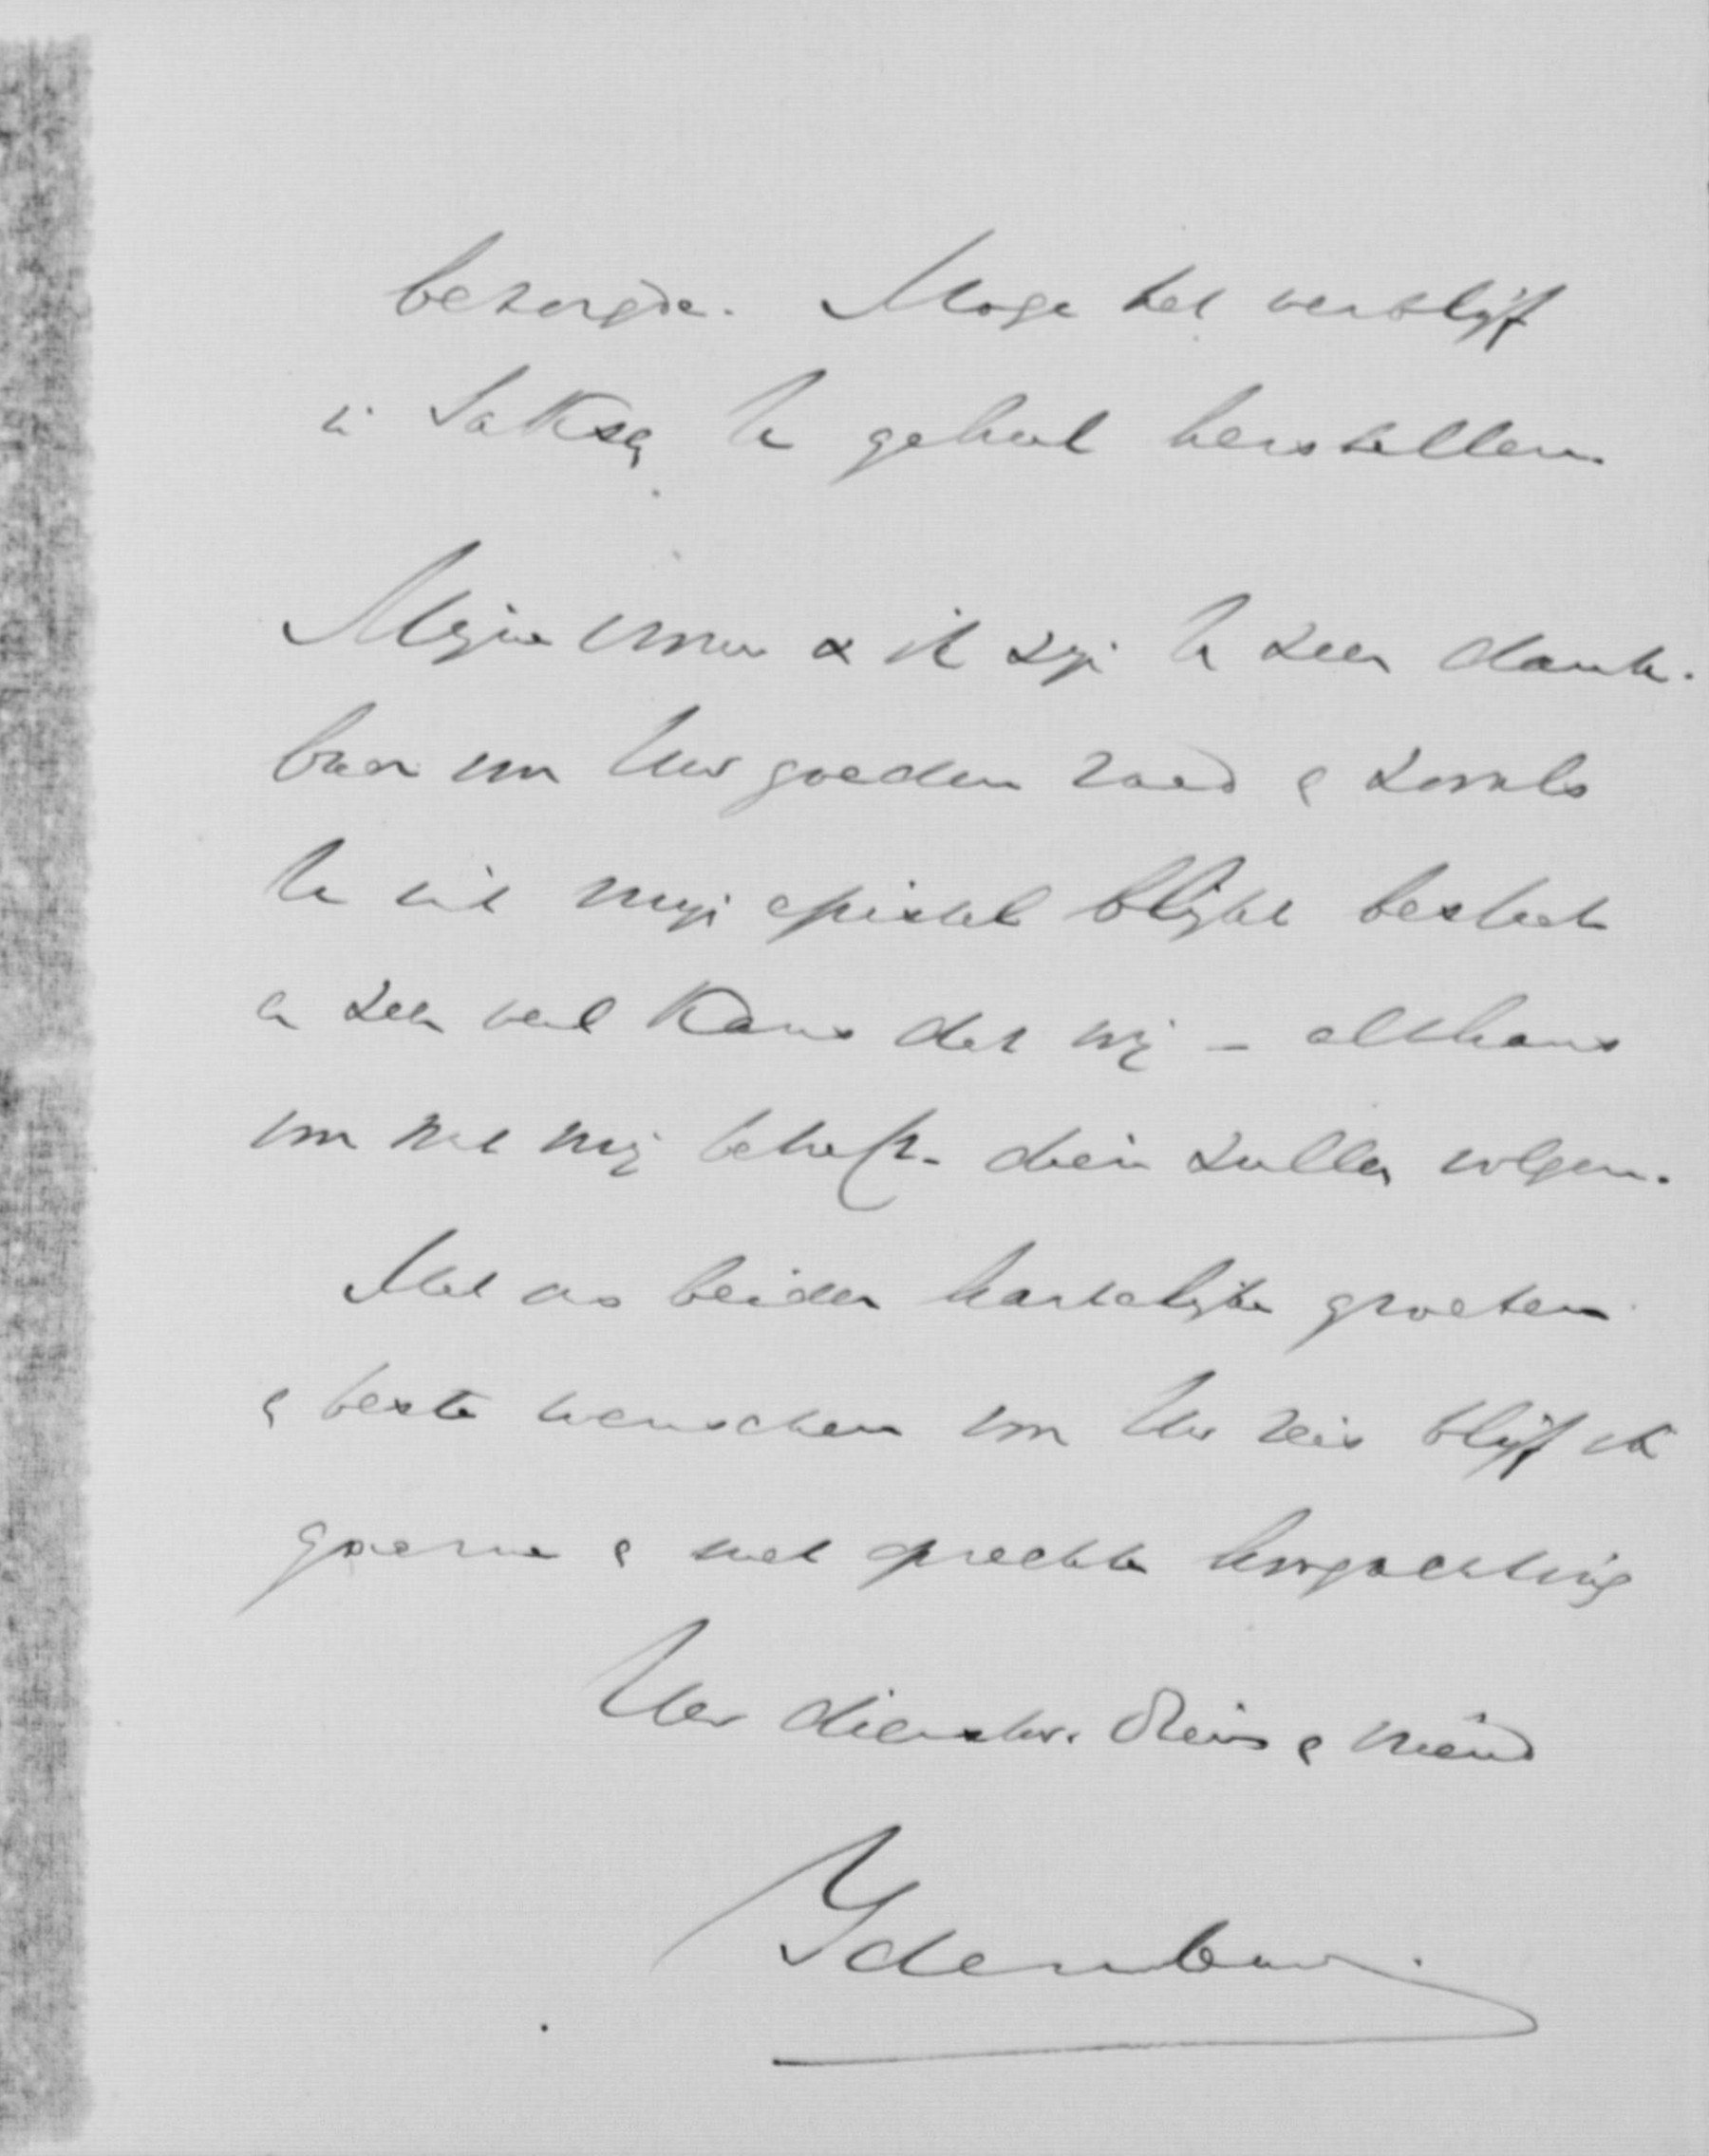 bezorgde. Moge het verblijf
in Saksen U geheel herstellen.
Mijne vrouw & ik zijn U zeer dank-
baar voor Uw goeden raad & zooals
U uit mijn epistel blijkt bestaat
er zeer veel kans dat wij – althans
voor wat mij betreft – dien zullen volgen.
Met ons beider hartelijke groeten
& beste wenschen voor Uw reis blijf ik
gaarne & met oprechte hoogachting
Uw dienstw. dien. & vriend
Idenburg